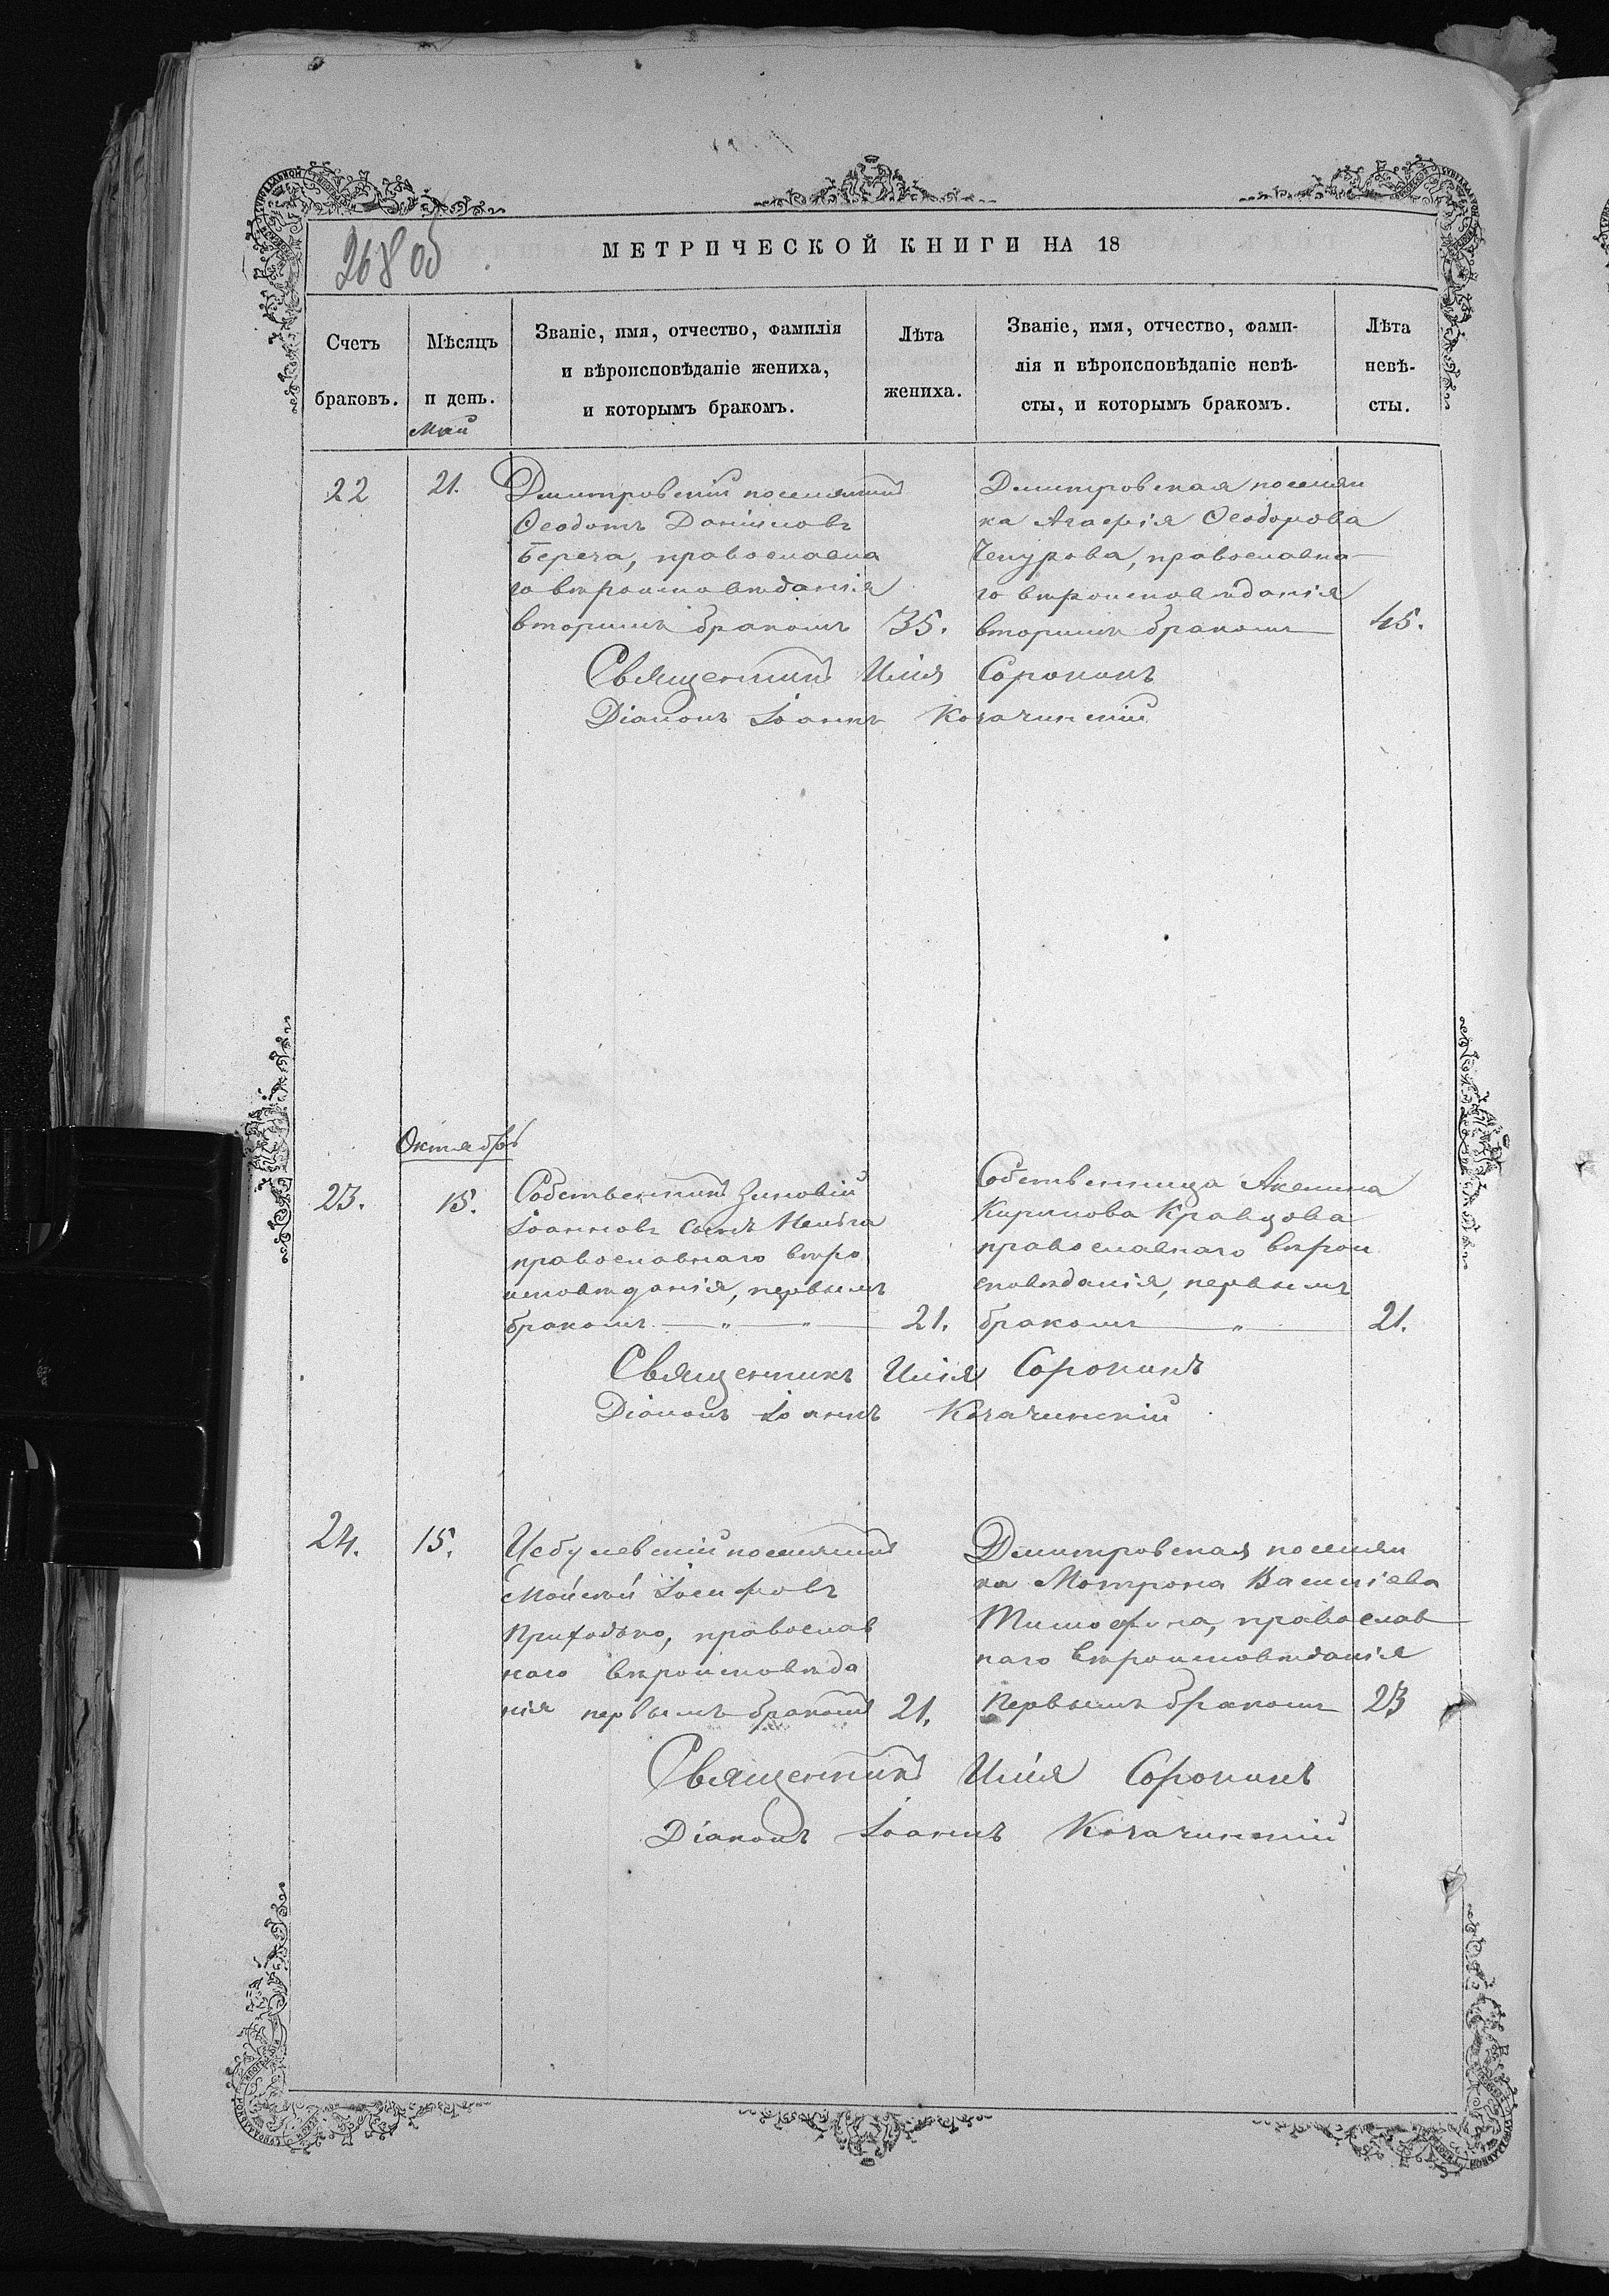 268 об
МЕТРИЧЕСКОЙ КНИГИ НА 18
Счетъ браковъ.
Мѣсяцъ и день.
Званіе, имя, отчество, фамилія
и вѣроисповѣданіе жениха,
и которымъ бракомъ.
Лѣта
жениха.
Званіе, имя, отчество, фами-
лія и вѣроисповѣданіе невѣ-
сты, и которымъ бракомъ.
Лѣта
невѣ-
сты.
Май
22
21.
Дмитровскій поселянинъ
Ѳеодотъ Даніиловъ
Береза, православна
го вѣроисповѣданія
вторымъ бракомъ
35.
Дмитровская поселян
ка Агафія Ѳеодорова
Чепурова, православна
го вѣроисповѣданія
вторымъ бракомъ
45.
Священникъ Илія Сорокинъ
Діаконъ Іоаннъ Козачинскій
Октябрь
23.
15.
Собственникъ Зиновій
Іоанновъ сынъ
православнаго вѣро
исповѣданія, первымъ
бракомъ — „ — „ —
21.
Собственница Акелина
Кирилова Кравцова
православнаго вѣрои
сповѣданія, первымъ
бракомъ — „ —
21.
Священникъ Илія Сорокинъ
Діаконъ Іоаннъ Козачинскій
24.
15.
Цебулевскій поселянинъ
Мойсей Іосифовъ
Приходько, православ
наго вѣроисповѣда
нія первымъ бракомъ
21.
Дмитровская поселян
ка Мотрона Василіева
Тимофина, православ
наго вѣроисповѣданія
первымъ бракомъ
23
Священникъ Илія Сорокинъ
Діаконъ Іоаннъ Козачинскій